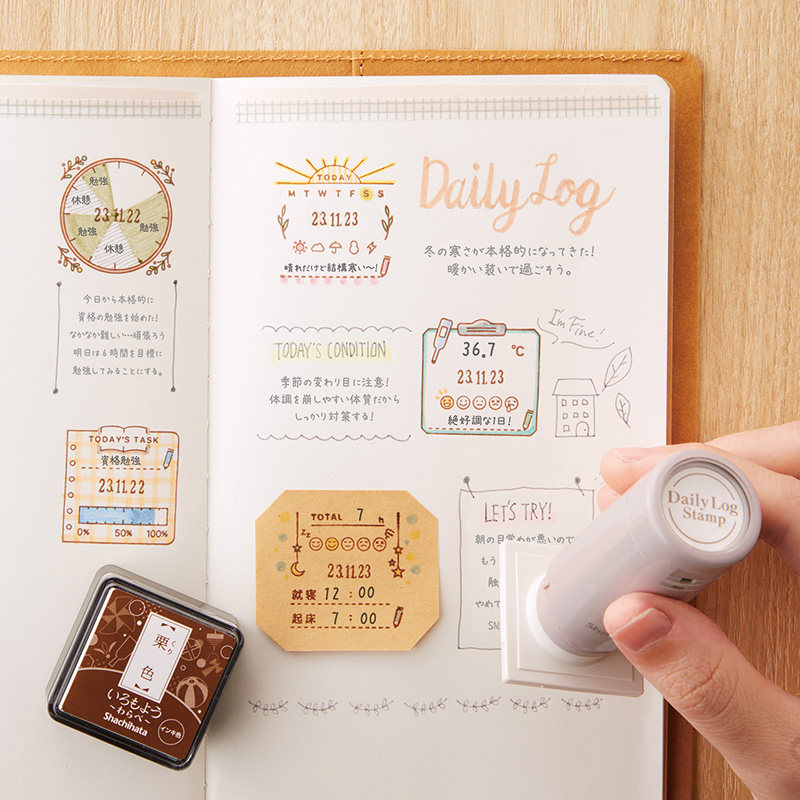 勉強
休憩
23.11.22
勉強
勉強
休憩
今日から本格的に
資格の勉強を始めた!
なかなか難しい…頑張ろう
明日は6時間を目標に
勉強してみることにする。
TODAY'S TASK
資格勉強
23.11.22
0% 50% 100%
【栗色】
くり
いろもよう
~わらべ~
Shachihata
インキ色
TODAY
M T W T F S S
23.11.23
晴れだけど結構寒い~!
Daily Log
冬の寒さが本格的になってきた!
暖かい装いで過ごそう。
TODAY'S CONDITION
季節の変わり目に注意!
体調を崩しやすい体質だから
しっかり対策する!
36.7 ℃
23.11.23
絶好調な1日!
I'm Fine!
TOTAL 7 h
zz
23.11.23
就寝 12:00
起床 7:00
LET'S TRY!
朝の目覚めが悪いので
もう
触
やめて
SN
Daily Log
Stamp